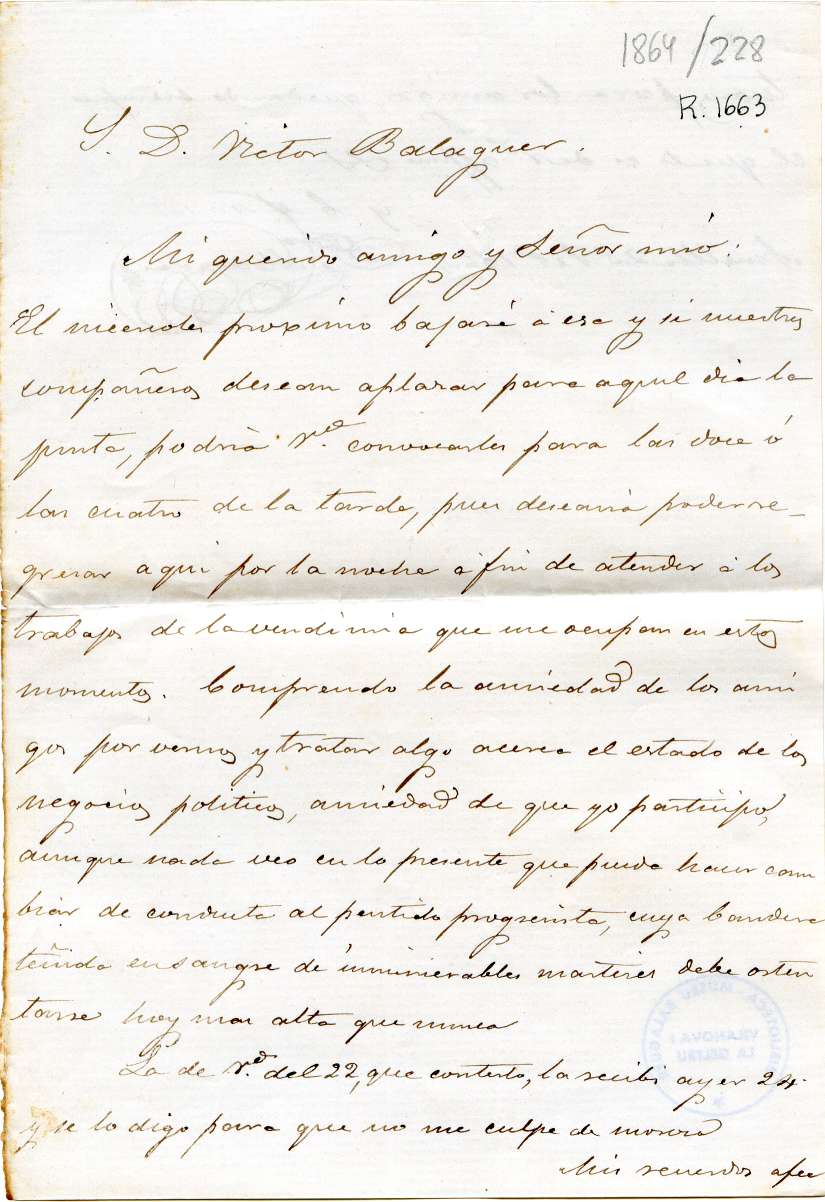 1864/228
R. 1663
S. D. Victor Balaguer.
Mi querido amigo y Señor mió:
El miercoles proximo bajaré á esa y si nuestros
compañeros desean aplazar para aquel dia la
junta, podria Vd. convocarles para las doce ó
las cuatro de la tarde, pues desearia poder re-
gresar aqui por la noche á fin de atender á los
trabajos de la vendimia que me ocupan en estos
momentos. Comprendo la ansiedad de los ami
gos por vernos y tratar algo acerca el estado de los
negocios politicos, ansiedad de que yo participo,
aunque nada veo en lo presente que pueda hacer cam
biar de conducta al partido progresista, cuya bandera
teñida en sangre de innumerables martires debe osten
tarse hoy mas alta que nunca
La de Vd. del 22, que contesto, la recibi ayer 24.
y se lo digo para que no me culpe de moroso
Mis recuerdos afec
BIBLIOTECA MUSEU BALAGUER
VILANOVA I
LA GELTRU